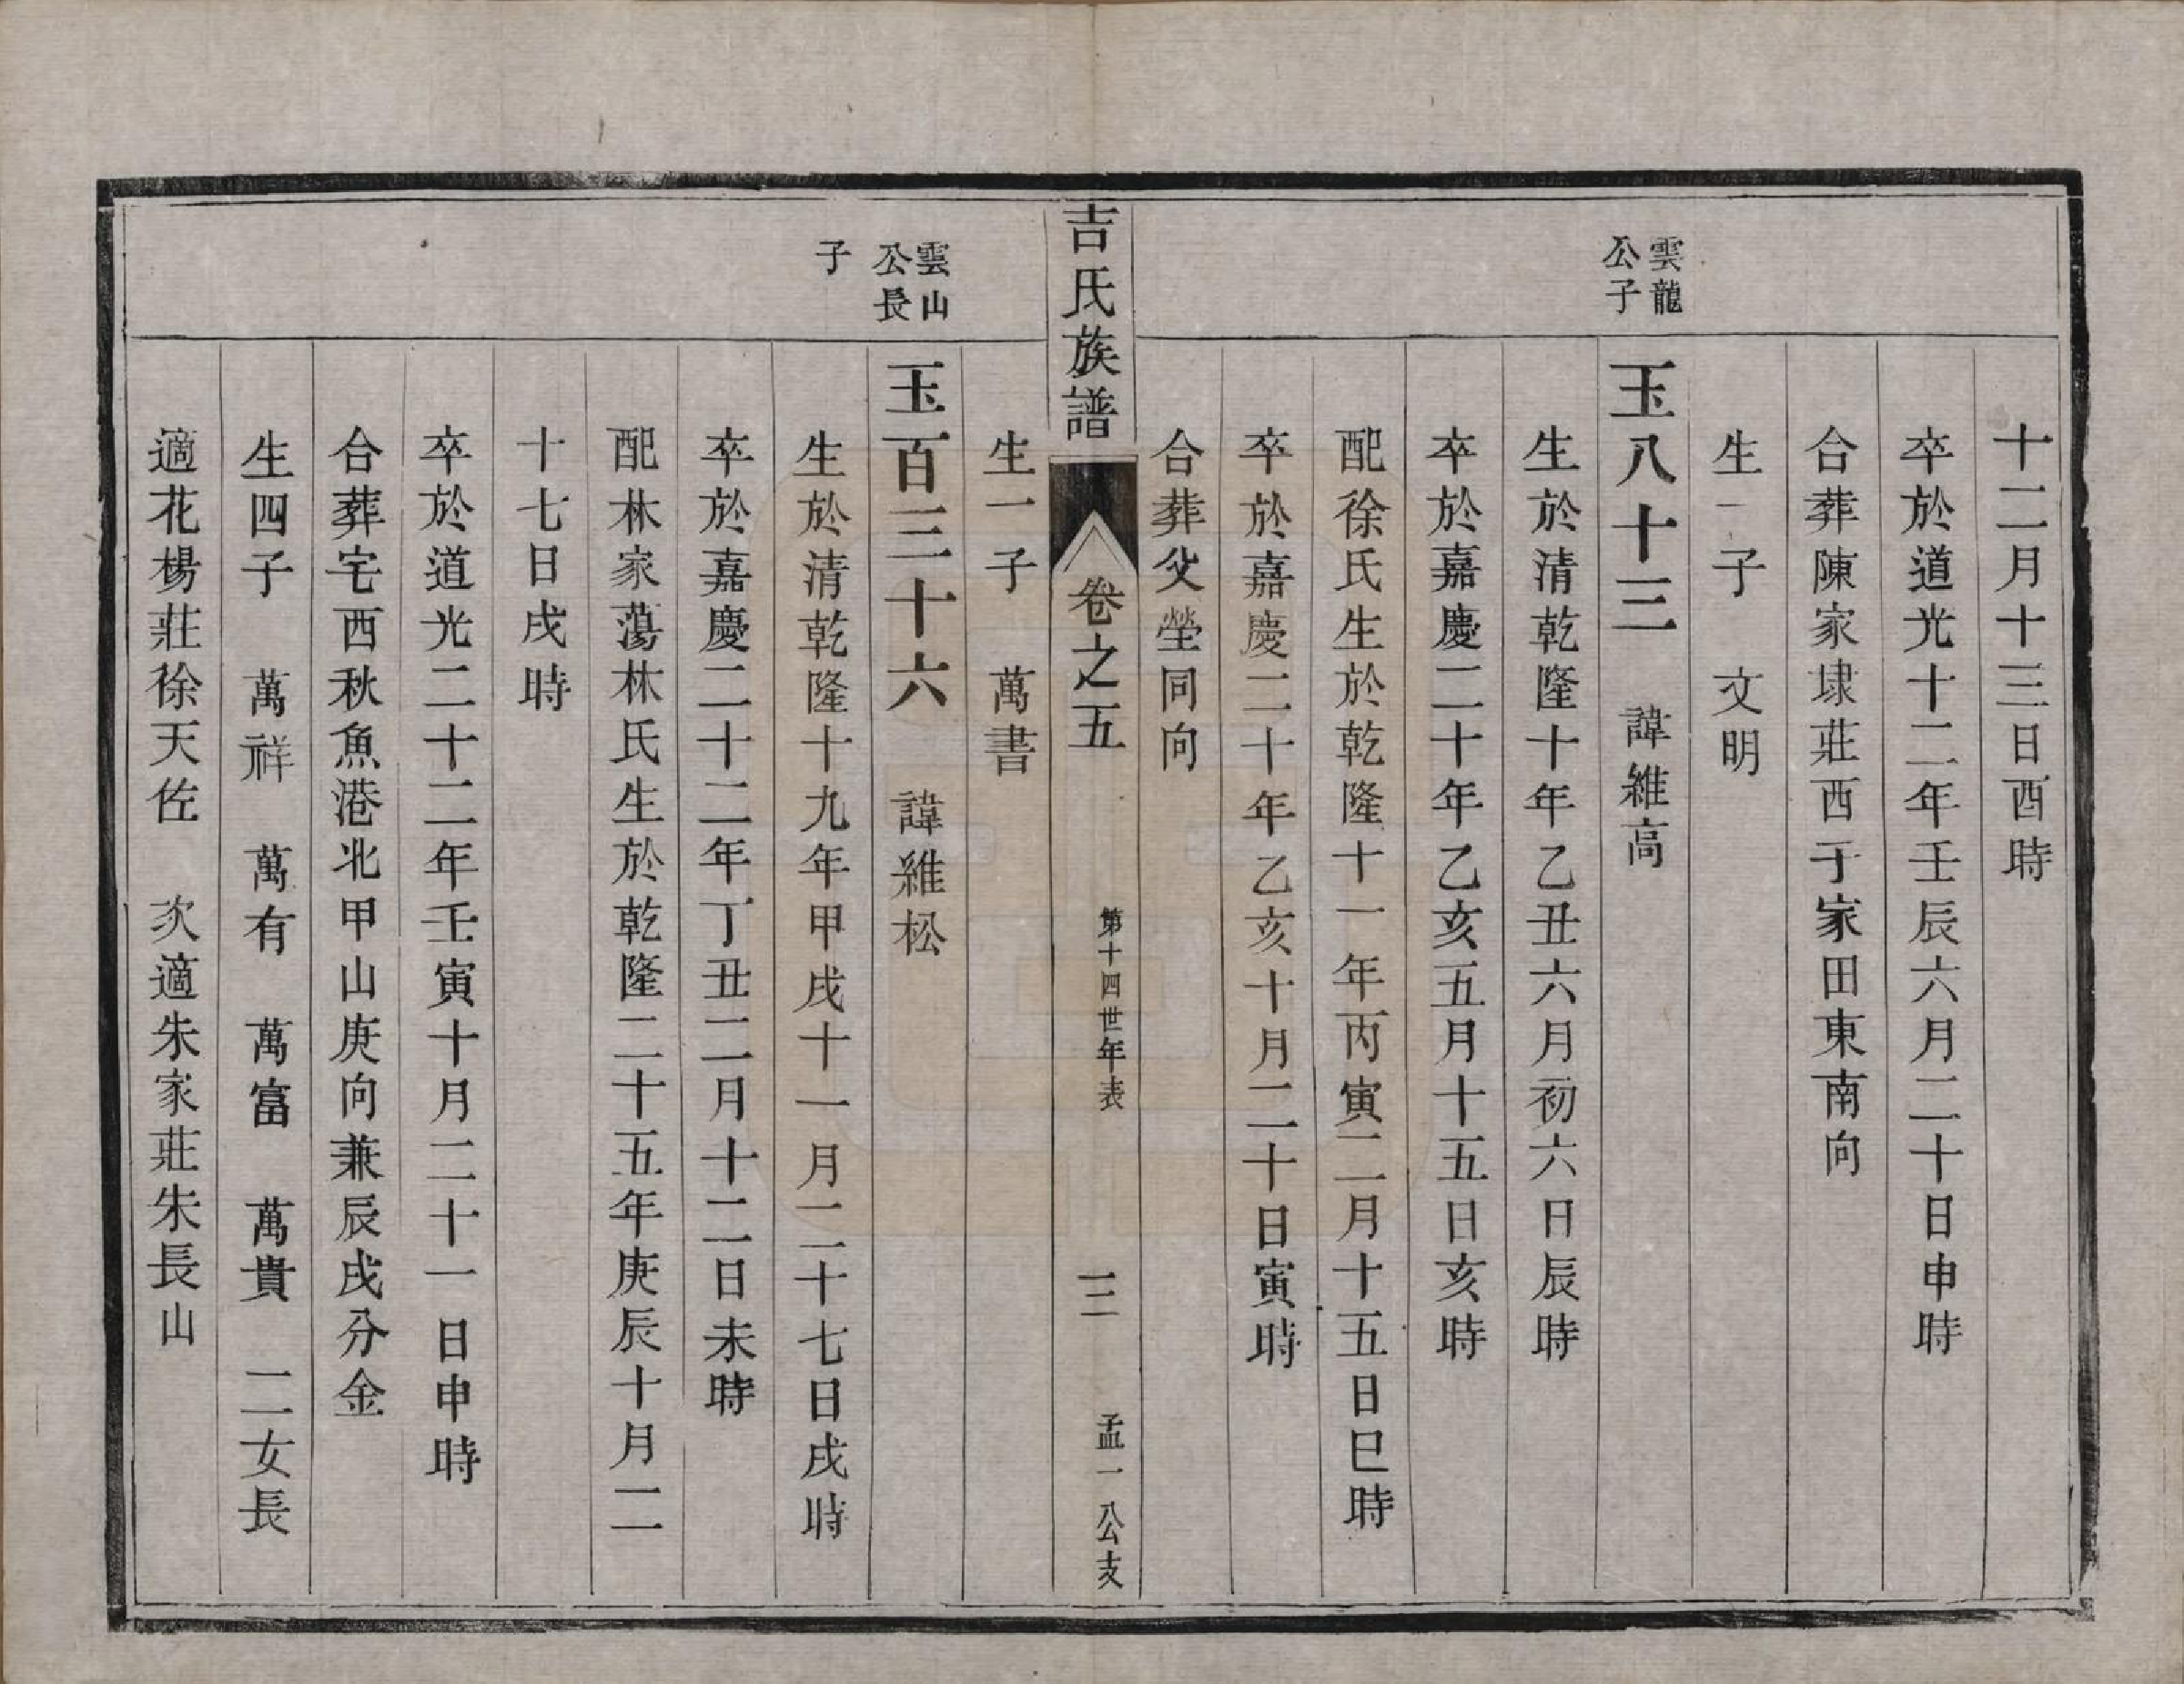 十二月十三日酉時
卒於道光十二年壬辰六月二十日申時
合葬陳家埭莊西于家田東南向
生一子　文明
雲龍
公子
玉八十三　諱維高
生於清乾隆十年乙丑六月初六日辰時
卒於嘉慶二十年乙亥五月十五日亥時
配徐氏生於乾隆十一年丙寅二月十五日巳時
卒於嘉慶二十年乙亥十月二十日寅時
合葬父塋同向
吉氏族譜　卷之五　第十四世年表　三　孟一公支
生一子　萬書
雲山
公長
子
玉百三十六　諱維松
生於清乾隆十九年甲戌十一月二十七日戌時
卒於嘉慶二十二年丁丑二月十二日未時
配林家蕩林氏生於乾隆二十五年庚辰十月二
十七日戌時
卒於道光二十二年壬寅十月二十一日申時
合葬宅西秋魚港北甲山庚向兼辰戌分金
生四子　萬祥　萬有　萬富　萬貴　二女長
適花楊莊徐天佐　次適朱家莊朱長山